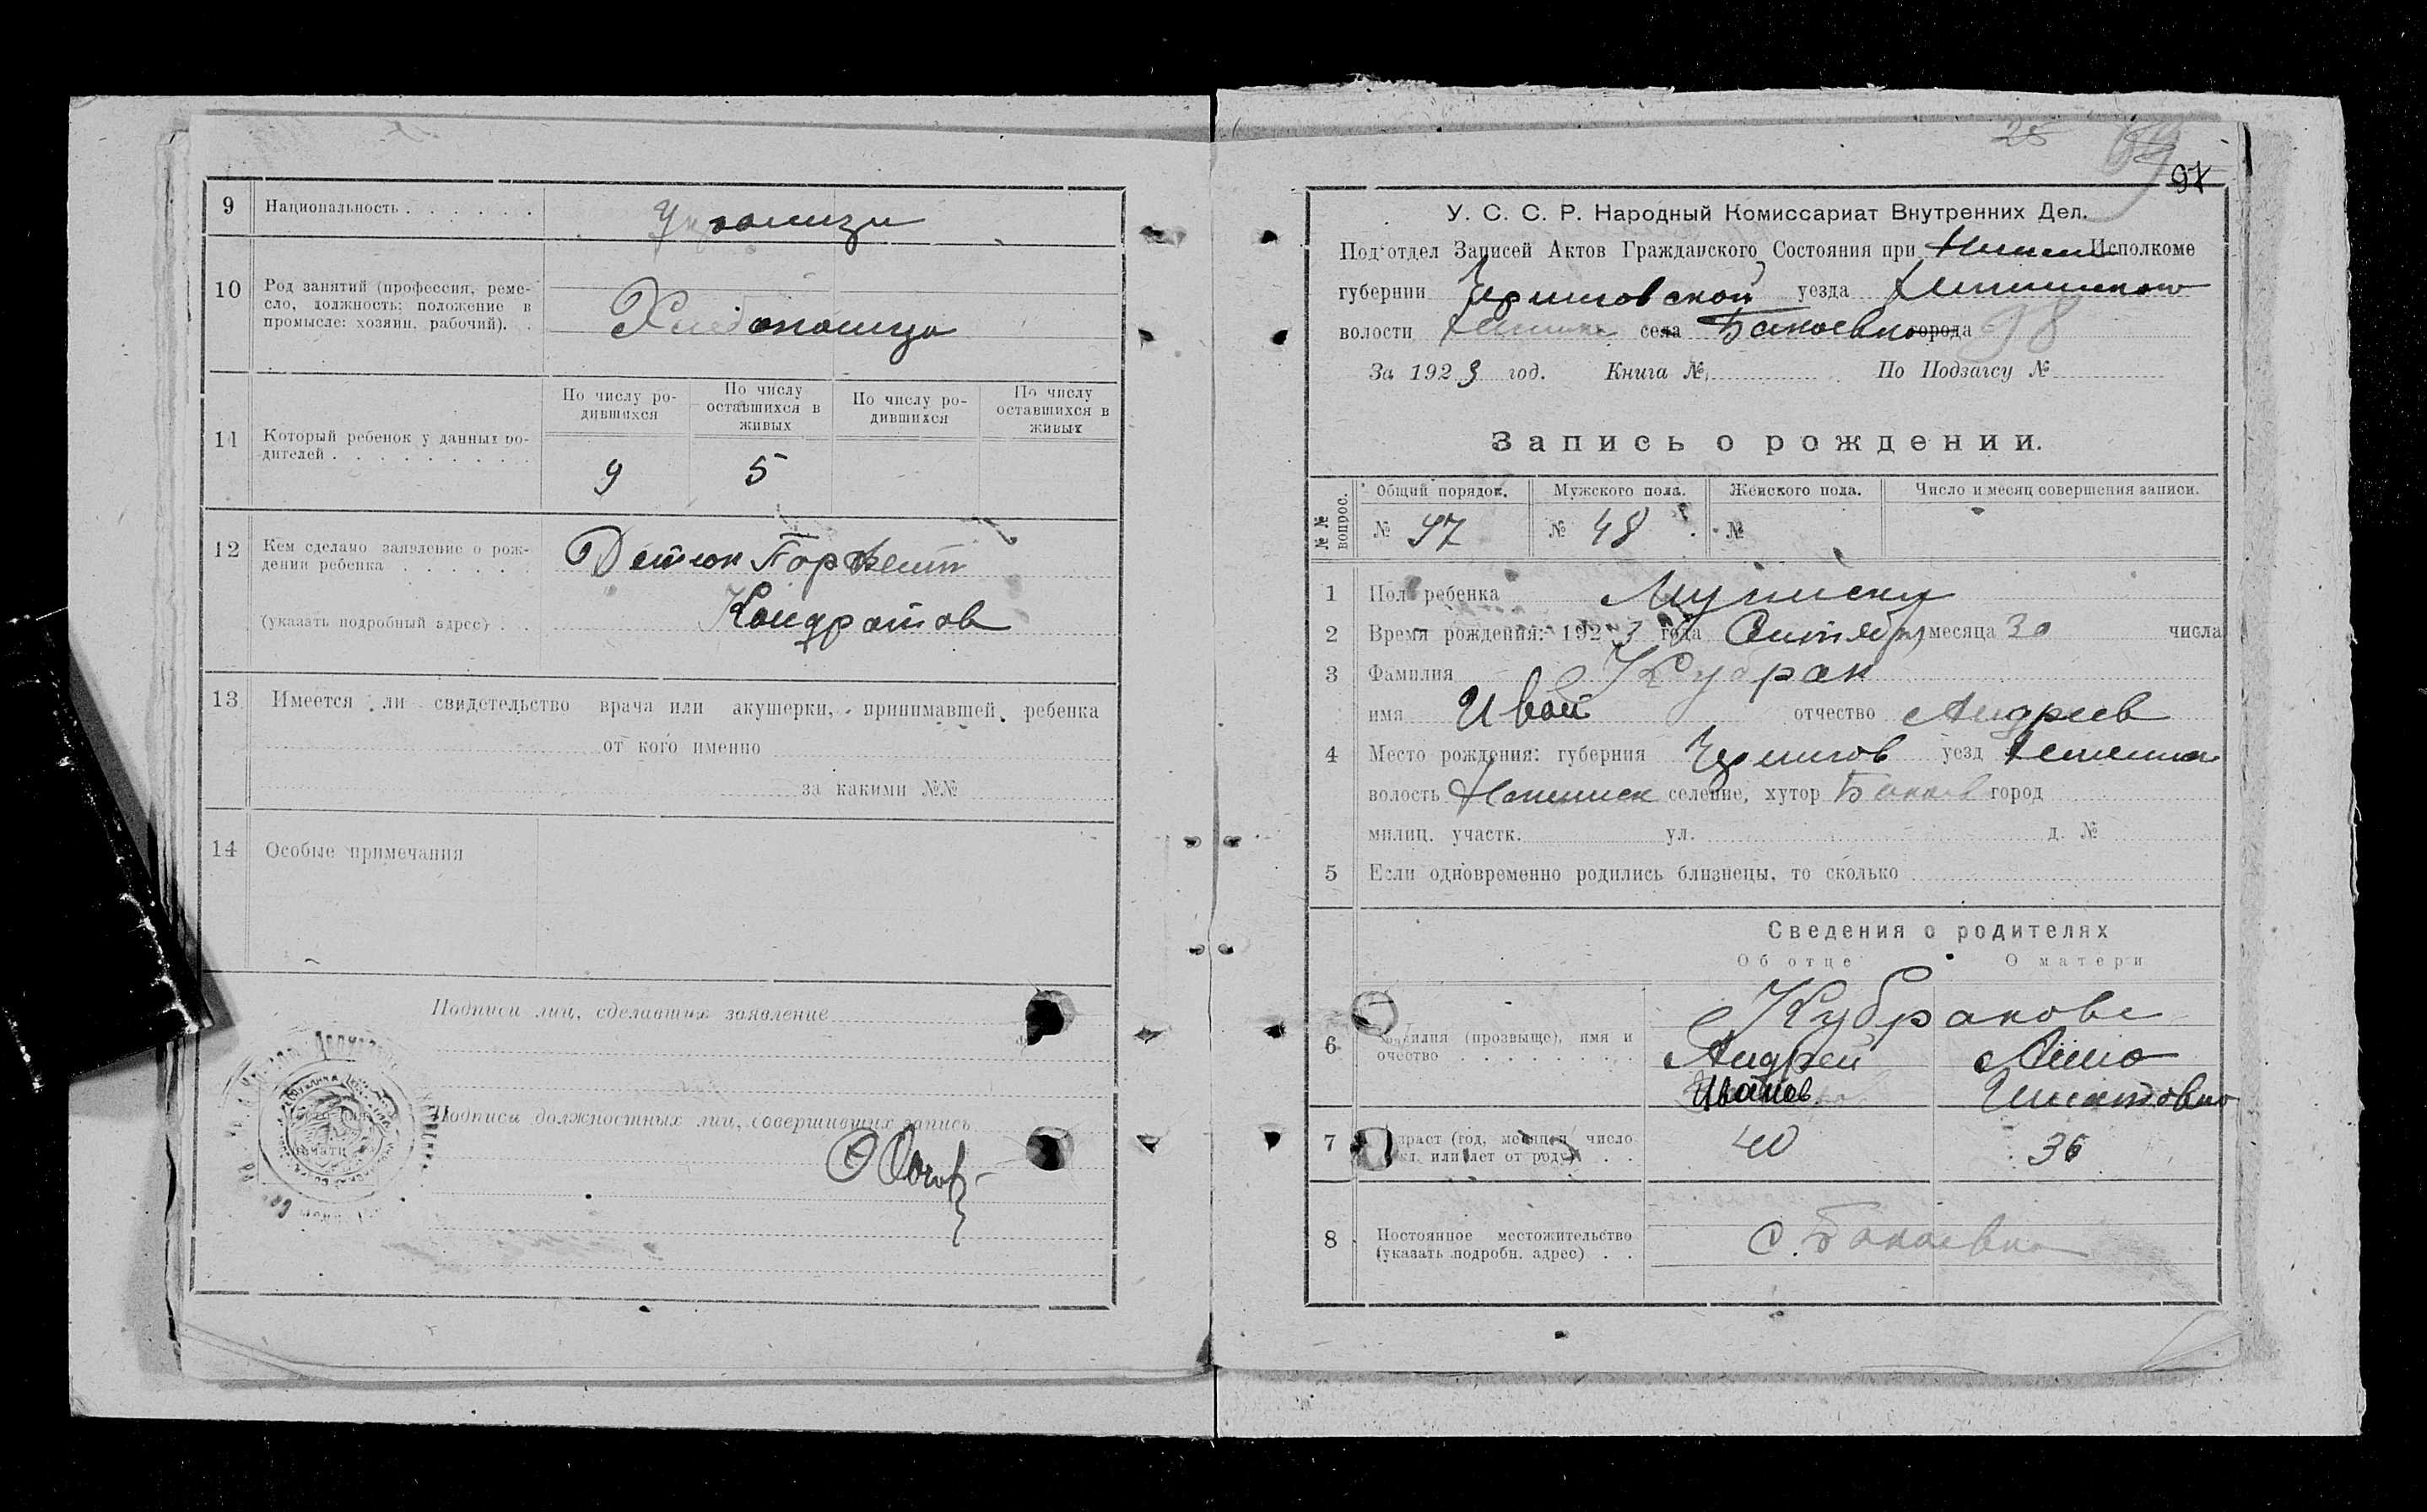 9 Национальность
10 Род занятий (профессия, реме-
сло, должность; положение в
промысле: хозяин, рабочий).
По числу ро-
дившихся
По числу
оставшихся в
живых
По числу ро-
дившихся
По числу
оставшихся в
живых
11 Который ребенок у данных ро-
дителей
9 5
12 Кем сделано заявление о рож-
дении ребенка
(указать подробный адрес)
Кондратов
13 Имеется ли свидетельство врача или акушерки, принимавшей ребенка
от кого именно
за какими №№
14 Особые примечания
Подписи лиц, сделавших заявление
Подписи должностных лиц, совершивших запись
28
97
У. С. С. Р. Народный Комиссариат Внутренних Дел.
Подотдел Записей Актов Гражданского Состояния при Исполкоме
губернии Черниговской уезда
волости села Бакаевка города 98
За 1923 год. Книга № По Подзагсу №
Запись о рождении.
№№ вопрос.
Общий порядок. Мужского пола. Женского пола. Число и месяц совершения записи.
№ 97 № 48 №
1 Пол ребенка
2 Время рождения: 1923 года месяца 30 числа
3 Фамилия Кубрак
имя Иван отчество Андреев
4 Место рождения: губерния Чернигов уезд
волость селение, хутор Бакаев город
милиц. участк. ул. д. №
5 Если одновременно родились близнецы, то сколько
Сведения о родителях
Об отце О матери
6 Фамилия (прозвыще), имя и
очество
Кубракове
Андрей
Иванов Игнатовна
7 Возраст (год, месяц и число
или лет от роду)
40 36
8 Постоянное местожительство
(указать подробн. адрес)
с. Бакаевка